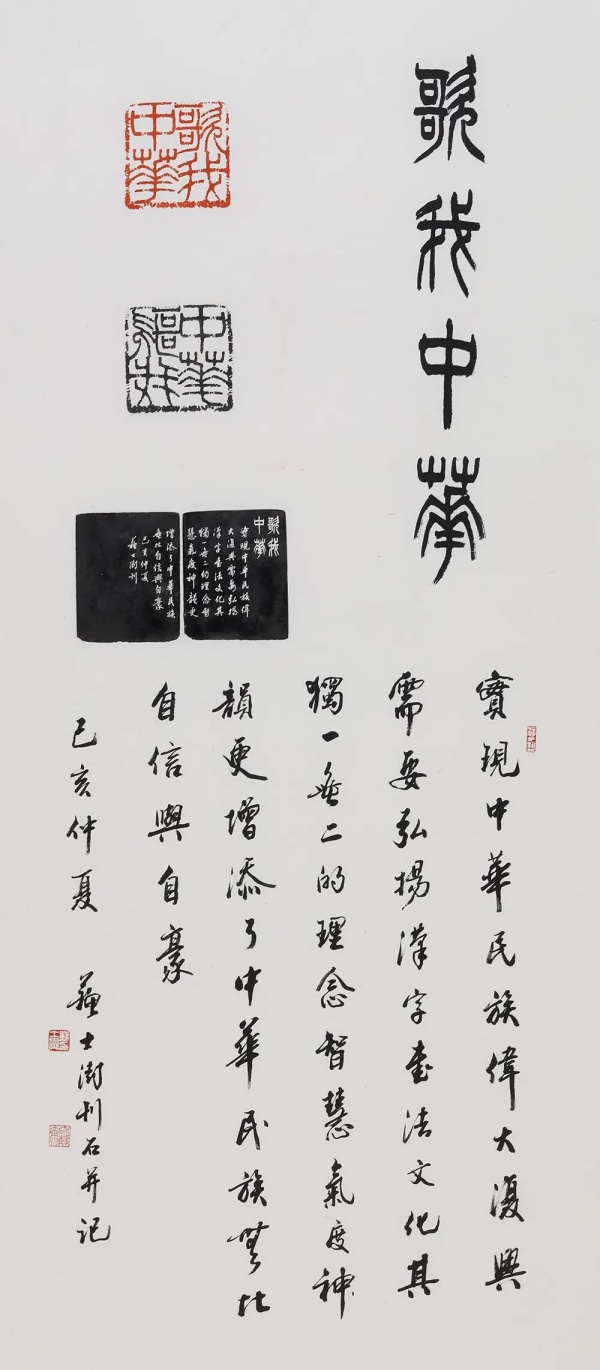 歌我中華
歌我
中華
中華
歌我
歌我
中華
實現中華民族偉
大復興需要弘揚
漢字書法文化其
獨一無二的理念智
慧氣度神韻更
增添了中華民族
無比自信與自豪
己亥仲夏
蘇士澍刊
實現中華民族偉大復興
需要弘揚漢字書法文化其
獨一無二的理念智慧氣度神
韻更增添了中華民族無比
自信與自豪
己亥仲夏 蘇士澍刊石并記